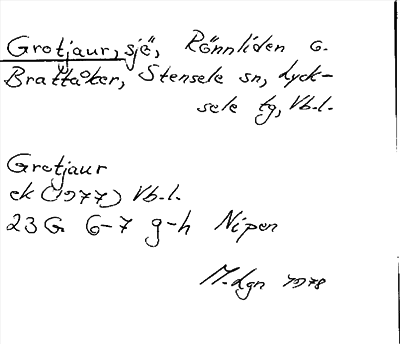 Grotjaur, sjö, Rönnliden o.
Brattåker, Stensele sn, Lyck-
sele tg, Vb.l.
Grotjaur
ek (1977) Vb.l.
23G 6-7 g-h Nipen
M. Lgn 1978